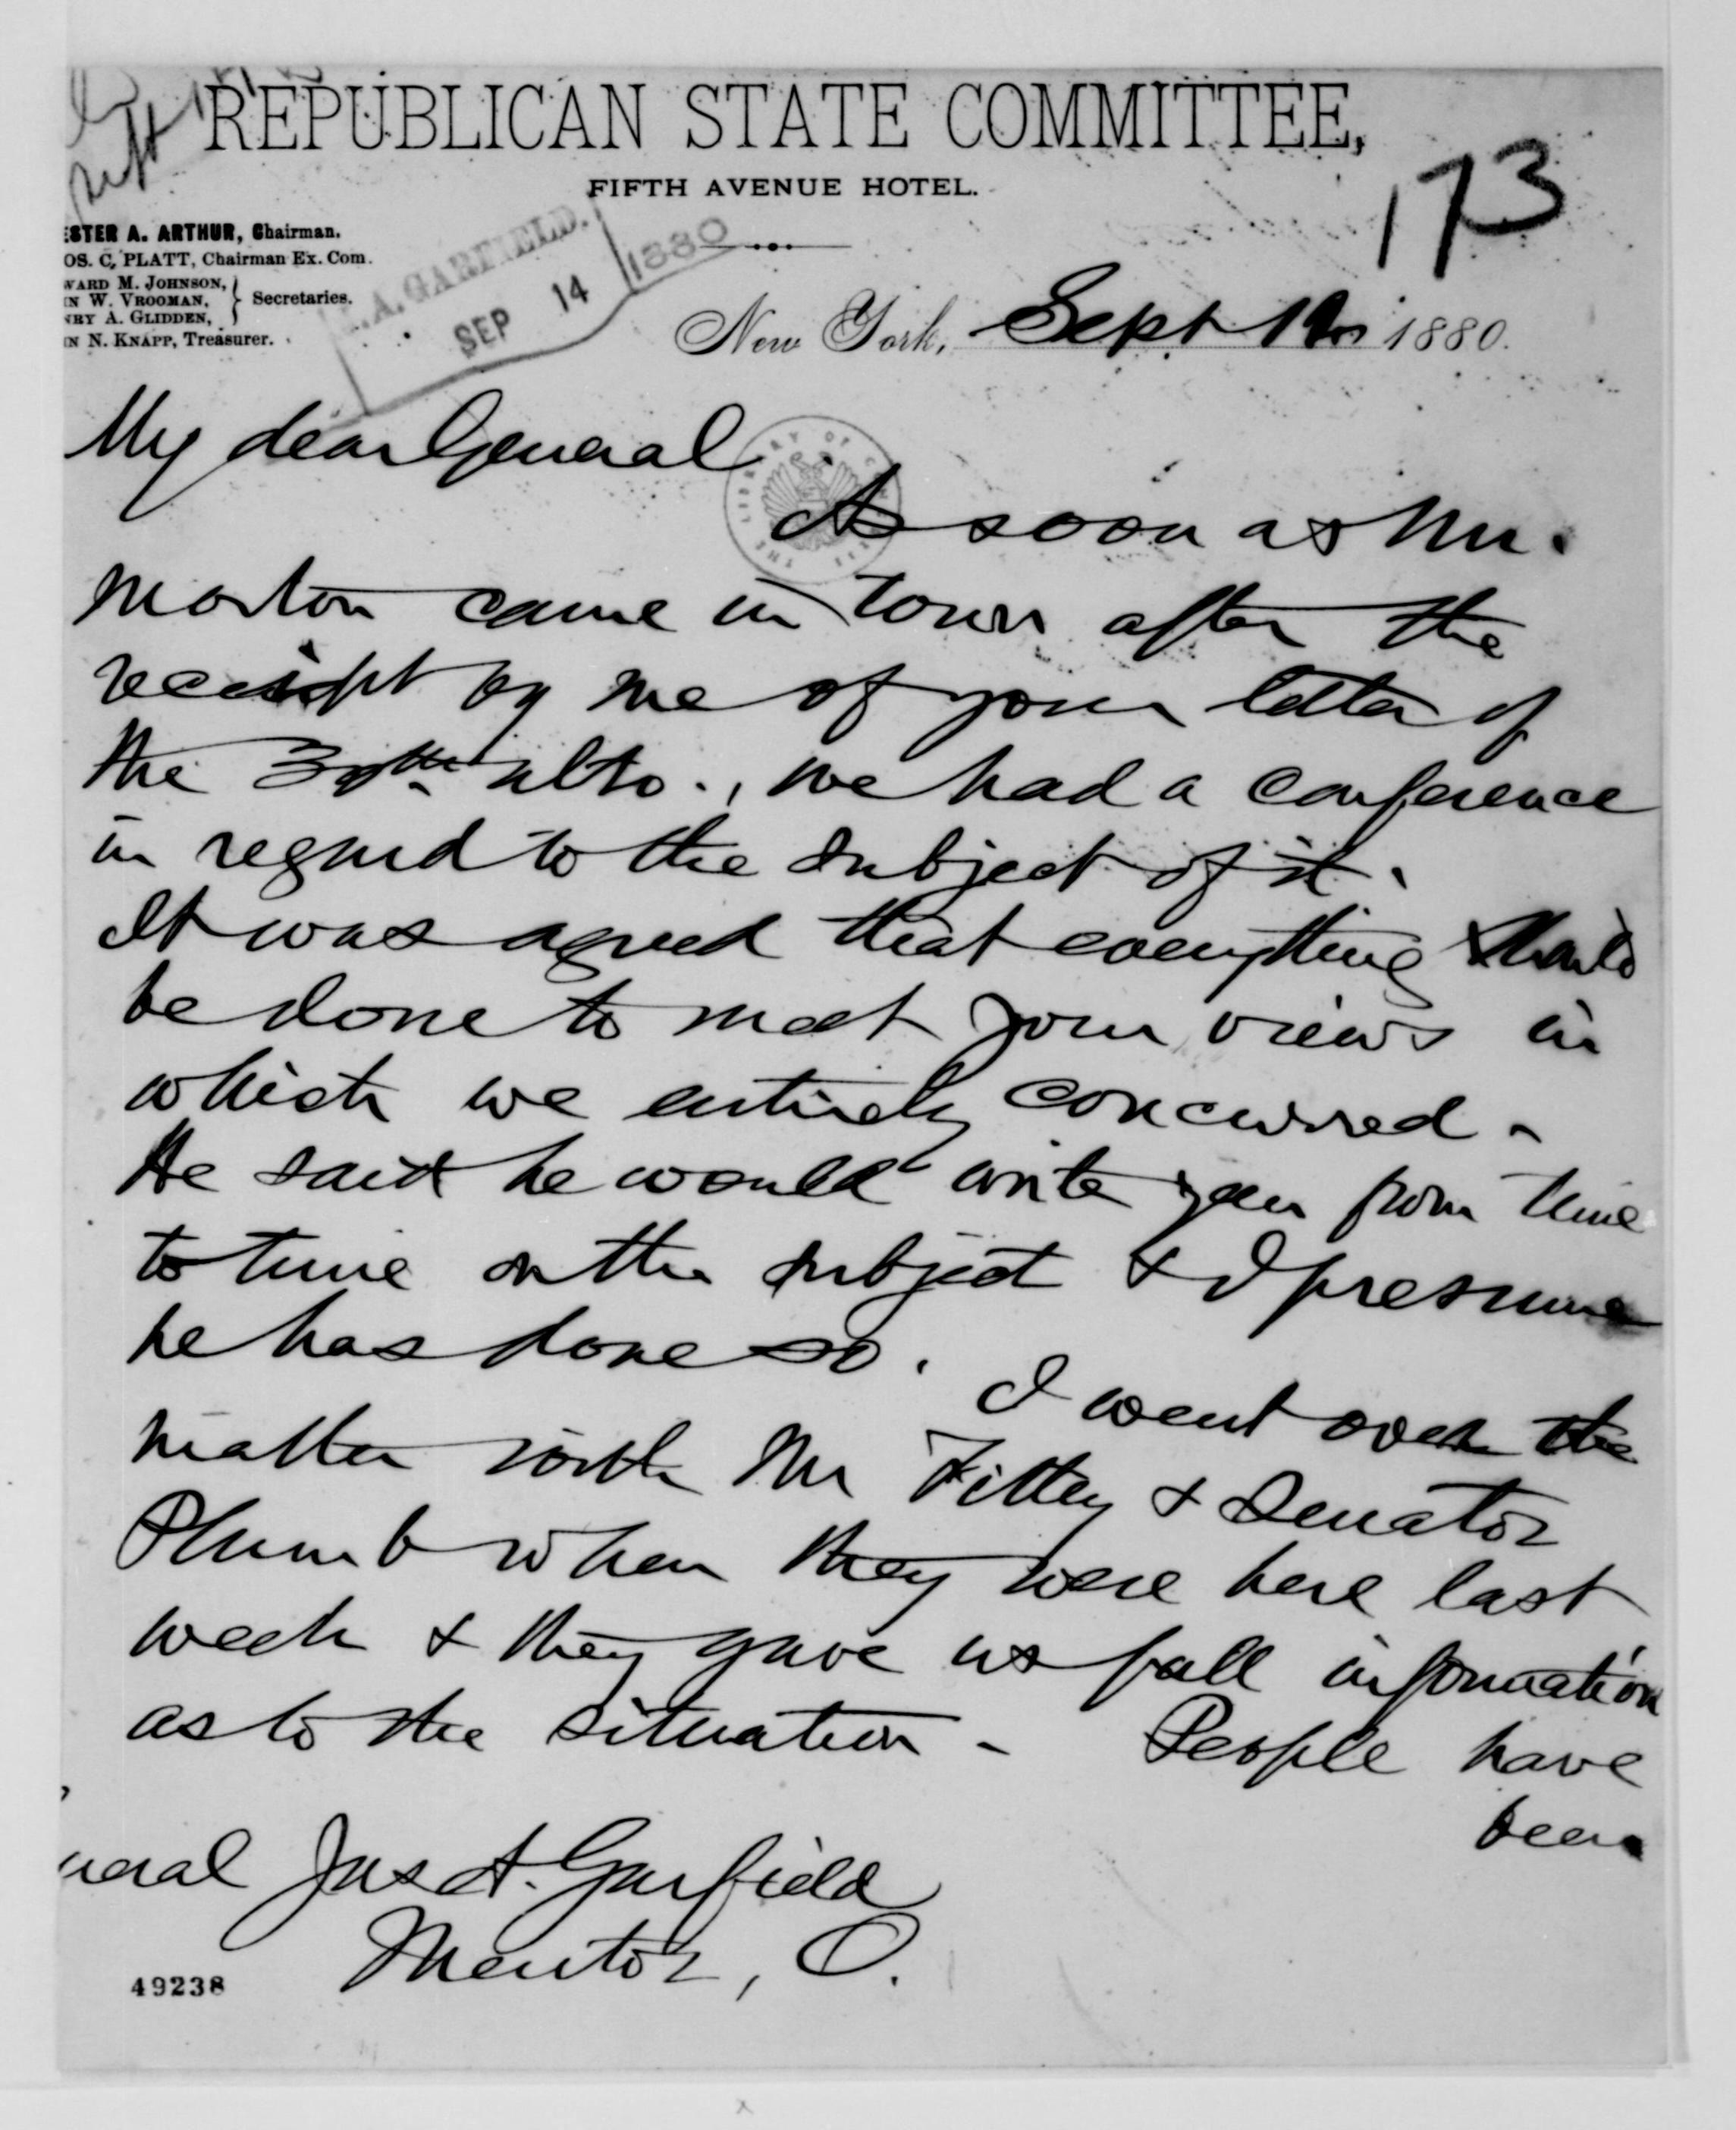 REPUBLICAN STATE COMMITTEE,
FIFTH AVENUE HOTEL.
173
STER A. ARTHUR, Chairman.
OS. C. PLATT, Chairman Ex. Com.
WARD M. JOHNSON,
N W. VROOMAN, } Secretaries.
RY A. GLIDDEN,
N N. KNAPP, Treasurer.
. A. GARFIELD.
SEP 14 1880
New York, Sept 1880.
My dear General
As soon as Mr.
Morton came in town after the
receipt by me of your letter of
the 30th ulto., we had a conference
in regard to the subject of it.
It was agreed that everything should
be done to meet your views in
which we entirely concurred -
He said he would write you from time
to time on the subject & I presume
he has done so. I went over the
matter with Mr & Senator
Plumb when they were here last
week & they gave us full information
as to the situation - People have
been
neral Jas A. Garfield
Mentor, O.
49238